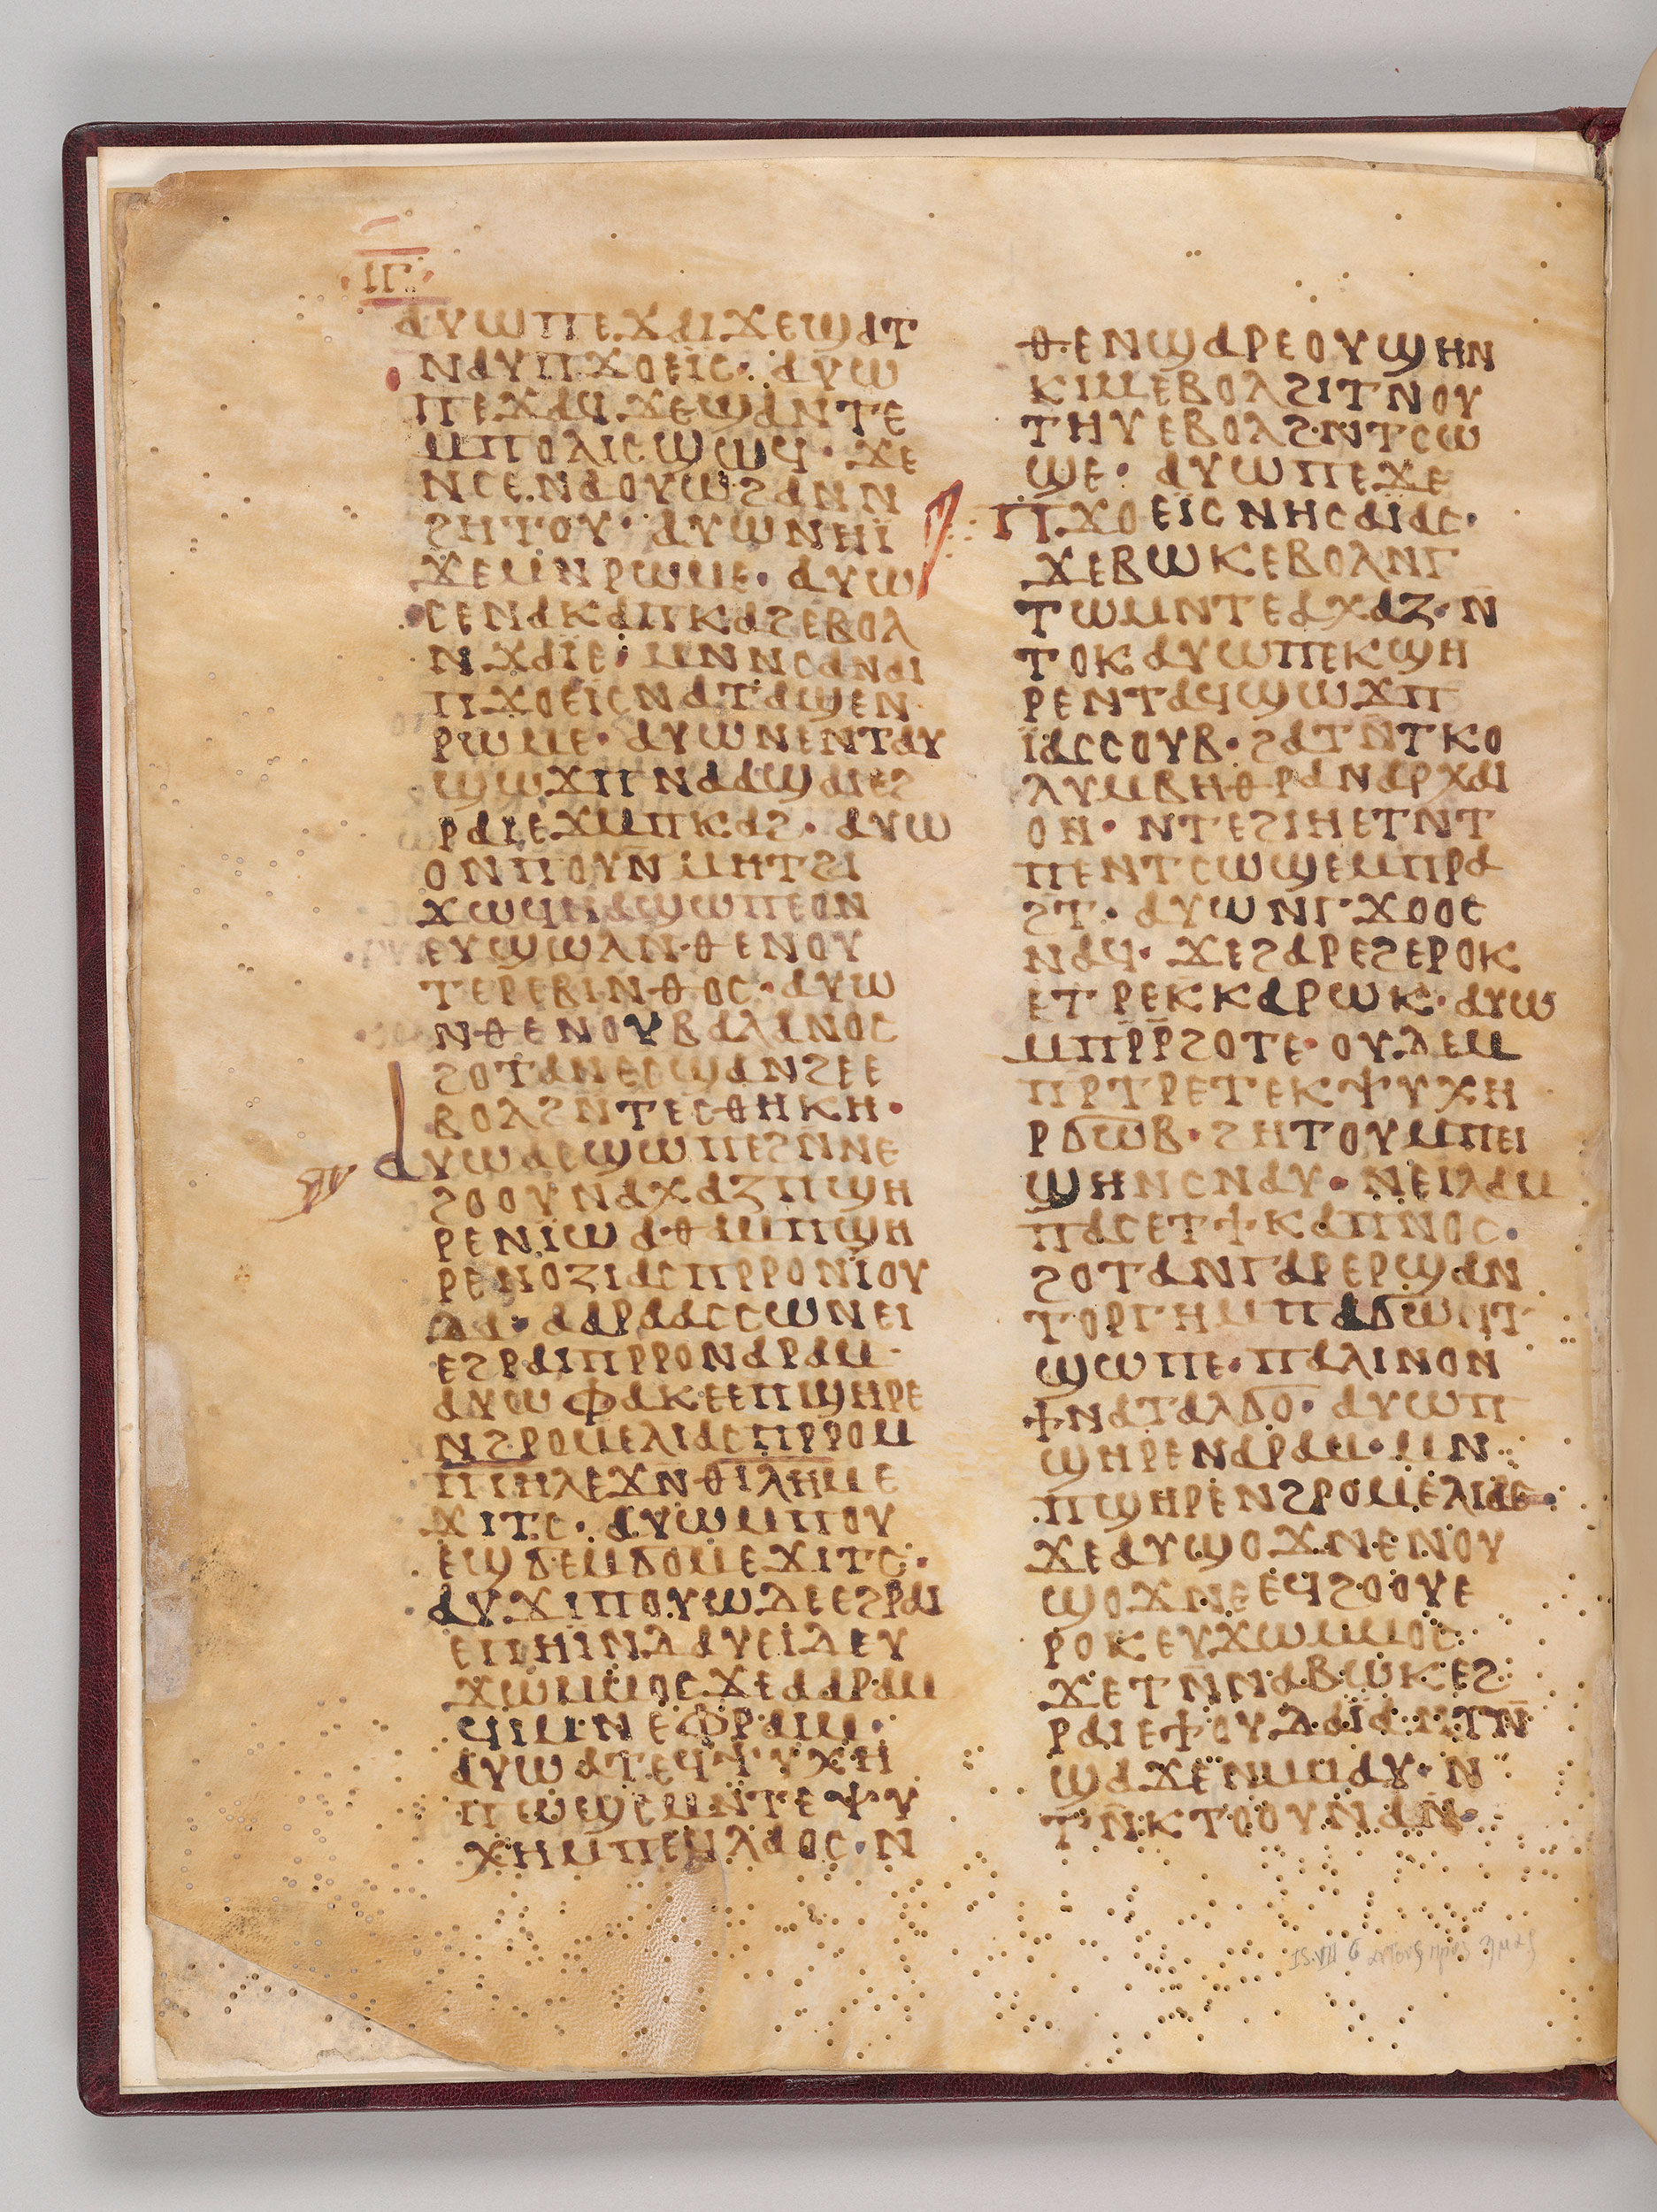 ⲓⲅ
ⲁⲩⲱⲡⲉϫⲁⲓϫⲉϣⲁⲧ
ⲛⲁⲩⲡϫⲟⲉⲓⲥ· ⲁⲩⲱ
ⲡⲉϫⲁϥϫⲉϣⲁⲛⲧⲉ
ⲙⲡⲟⲗⲓⲥϣⲱϥ· ϫⲉ
ⲛⲥⲉⲛⲁⲟⲩⲱϩⲁⲛⲛ
ϩⲏⲧⲟⲩ· ⲁⲩⲱⲛⲏⲓ̈
ϫⲉⲙⲛⲣⲱⲙⲉ· ⲁⲩⲱ
ⲥⲉⲛⲁⲕⲁⲡⲕⲁϩⲉⲃⲟⲗ
ⲛϫⲁⲓⲉ· ⲙⲛⲛⲥⲁⲛⲁⲓ
ⲡϫⲟⲉⲓⲥⲛⲁⲧⲁϣⲉⲛ
ⲣⲱⲙⲉ· ⲁⲩⲱⲛⲉⲛⲧⲁⲩ
ϣⲱϫⲡⲛⲁⲁϣⲁⲓⲉϩ
ⲣⲁⲓⲉϫⲙⲡⲕⲁϩ· ⲁⲩⲱ
ⲟⲛⲡⲟⲩⲛⲙⲏⲧϩⲓ
ϫⲱϥⲛⲁϣⲱⲡⲉⲟⲛ
ⲉⲩϣⲱⲗⲛⲑⲉⲛⲟⲩ
ⲧⲉⲣⲉⲃⲓⲛⲑⲟⲥ· ⲁⲩⲱ
ⲛⲑⲉⲛⲟⲩⲃⲁⲗⲁⲛⲟⲥ
ϩⲟⲧⲁⲛⲉⲥϣⲁⲛϩⲉⲉ
ⲃⲟⲗϩⲛⲧⲉⲥⲑⲏⲕⲏ·
ⲁⲩⲱⲁⲥϣⲱⲡⲉϩⲛⲛⲉ
ϩⲟⲟⲩⲛⲁⲭⲁⲍⲡϣⲏ
ⲣⲉⲛⲓ̈ⲱⲁⲑⲁⲙⲡϣⲏ
ⲣⲉⲛⲟⲍⲓⲁⲥⲡⲣⲣⲟⲛⲓ̈ⲟⲩ
ⲇⲁ· ⲁⲁⲣⲁⲁⲥⲥⲱⲛⲉⲓ
ⲉϩⲣⲁⲓⲡⲣⲣⲟⲛⲁⲣⲁⲙ·
ⲁⲩⲱⲫⲁⲕⲉⲉⲡϣⲏⲣⲉ
ⲛϩⲣⲟⲙⲉⲗⲓⲁⲥⲡⲣⲣⲟⲙ
ⲡⲓⲏⲗⲉϫⲛⲑⲓⲗⲏⲙⲉ
ϫⲓⲧⲥ· ⲁⲩⲱⲙⲡⲟⲩ
ⲉϣϭⲉⲙϭⲟⲙⲉϫⲓⲧⲥ·
ⲁⲩϫⲓⲡⲟⲩⲱⲇⲉⲉϩⲣⲁⲓ
ⲉⲡⲏⲓⲛⲇⲁⲩⲉⲓⲇⲉⲩ
ϫⲱⲙⲙⲟⲥϫⲉⲁⲁⲣⲁⲙ
ϥⲓⲙⲛⲉⲫⲣⲁⲓⲙ·
ⲁⲩⲱⲁⲧⲉϥⲯⲩⲭⲏ
ⲡⲱϣⲥⲙⲛⲧⲉⲯⲩ
ⲭⲏⲙⲡⲉϥⲗⲁⲟⲥ· ⲛ
ⲑⲉⲛϣⲁⲣⲉⲟⲩϣⲏⲛ
ⲕⲓⲙⲉⲃⲟⲗϩⲓⲧⲛⲟⲩ
ⲧⲏⲩⲉⲃⲟⲗϩⲛⲧⲥⲱ
ϣⲉ· ⲁⲩⲱⲡⲉϫⲉ
ⲡϫⲟⲉⲓ̈ⲥⲛⲏⲥⲁⲓ̈ⲁⲥ·
ϫⲉⲃⲱⲕⲉⲃⲟⲗⲛⲅ
ⲧⲱⲙⲛⲧⲉⲁⲭⲁⲍ· ⲛ̄
ⲧⲟⲕⲁⲩⲱⲡⲉⲕϣⲏ
ⲣⲉⲛⲧⲁϥϣⲱϫⲡ
ⲓ̈ⲁⲥⲥⲟⲩⲃ· ϩⲁⲧⲛⲧⲕⲟ
ⲗⲩⲙⲃⲏⲑⲣⲁⲛⲁⲣⲭⲁⲓ
ⲟⲛ· ⲛⲧⲉϩⲓⲏⲉⲧⲛⲧ
ⲡⲉⲛⲧⲥⲱϣⲉⲙⲡⲣⲁ
ϩⲧ· ⲁⲩⲱⲛⲅϫⲟⲟⲥ
ⲛⲁϥ· ϫⲉϩⲁⲣⲉϩⲉⲣⲟⲕ
ⲉⲧⲣⲉⲕⲕⲁⲣⲱⲕ· ⲁⲩⲱ
ⲙⲡⲣ̄ⲣ̄ϩⲟⲧⲉ· ⲟⲩⲇⲉⲙ
ⲡⲣⲧⲣⲉⲧⲉⲕⲯⲩⲭⲏ
ⲣϭⲱⲃ· ϩⲏⲧⲟⲩⲙⲡⲉⲓ
ϣⲏⲛⲥⲛⲁⲩ· ⲛⲉⲓⲗⲁⲙ
ⲡⲁⲥⲉⲧϯⲕⲁⲡⲛⲟⲥ·
ϩⲟⲧⲁⲛⲅⲁⲣⲉⲣϣⲁⲛ
ⲧⲟⲣⲅⲏⲙⲡⲁϭⲱⲛⲧ
ϣⲱⲡⲉ· ⲡⲁⲗⲓⲛⲟⲛ
ϯⲛⲁⲧⲁⲗϭⲟ· ⲁⲩⲱⲡ
ϣⲏⲣⲉⲛⲁⲣⲁⲙ· ⲙⲛ
ⲡϣⲏⲣⲉⲛϩⲣⲟⲙⲉⲗⲓⲁⲥ·
ϫⲉⲁⲩϣⲟϫⲛⲉⲛⲟⲩ
ϣⲟϫⲛⲉⲉϥϩⲟⲟⲩⲉ
ⲣⲟⲕⲉⲩϫⲱⲙⲙⲟⲥ
ϫⲉⲧⲛⲛⲁⲃⲱⲕⲉϩ
ⲣⲁⲓⲉϯⲟⲩⲇⲁⲓ̈ⲁⲛⲧⲛ̄
ϣⲁϫⲉⲛⲙⲙⲁⲩ· ⲛ
ⲧⲛⲕⲧⲟⲟⲩⲛⲁⲛ·